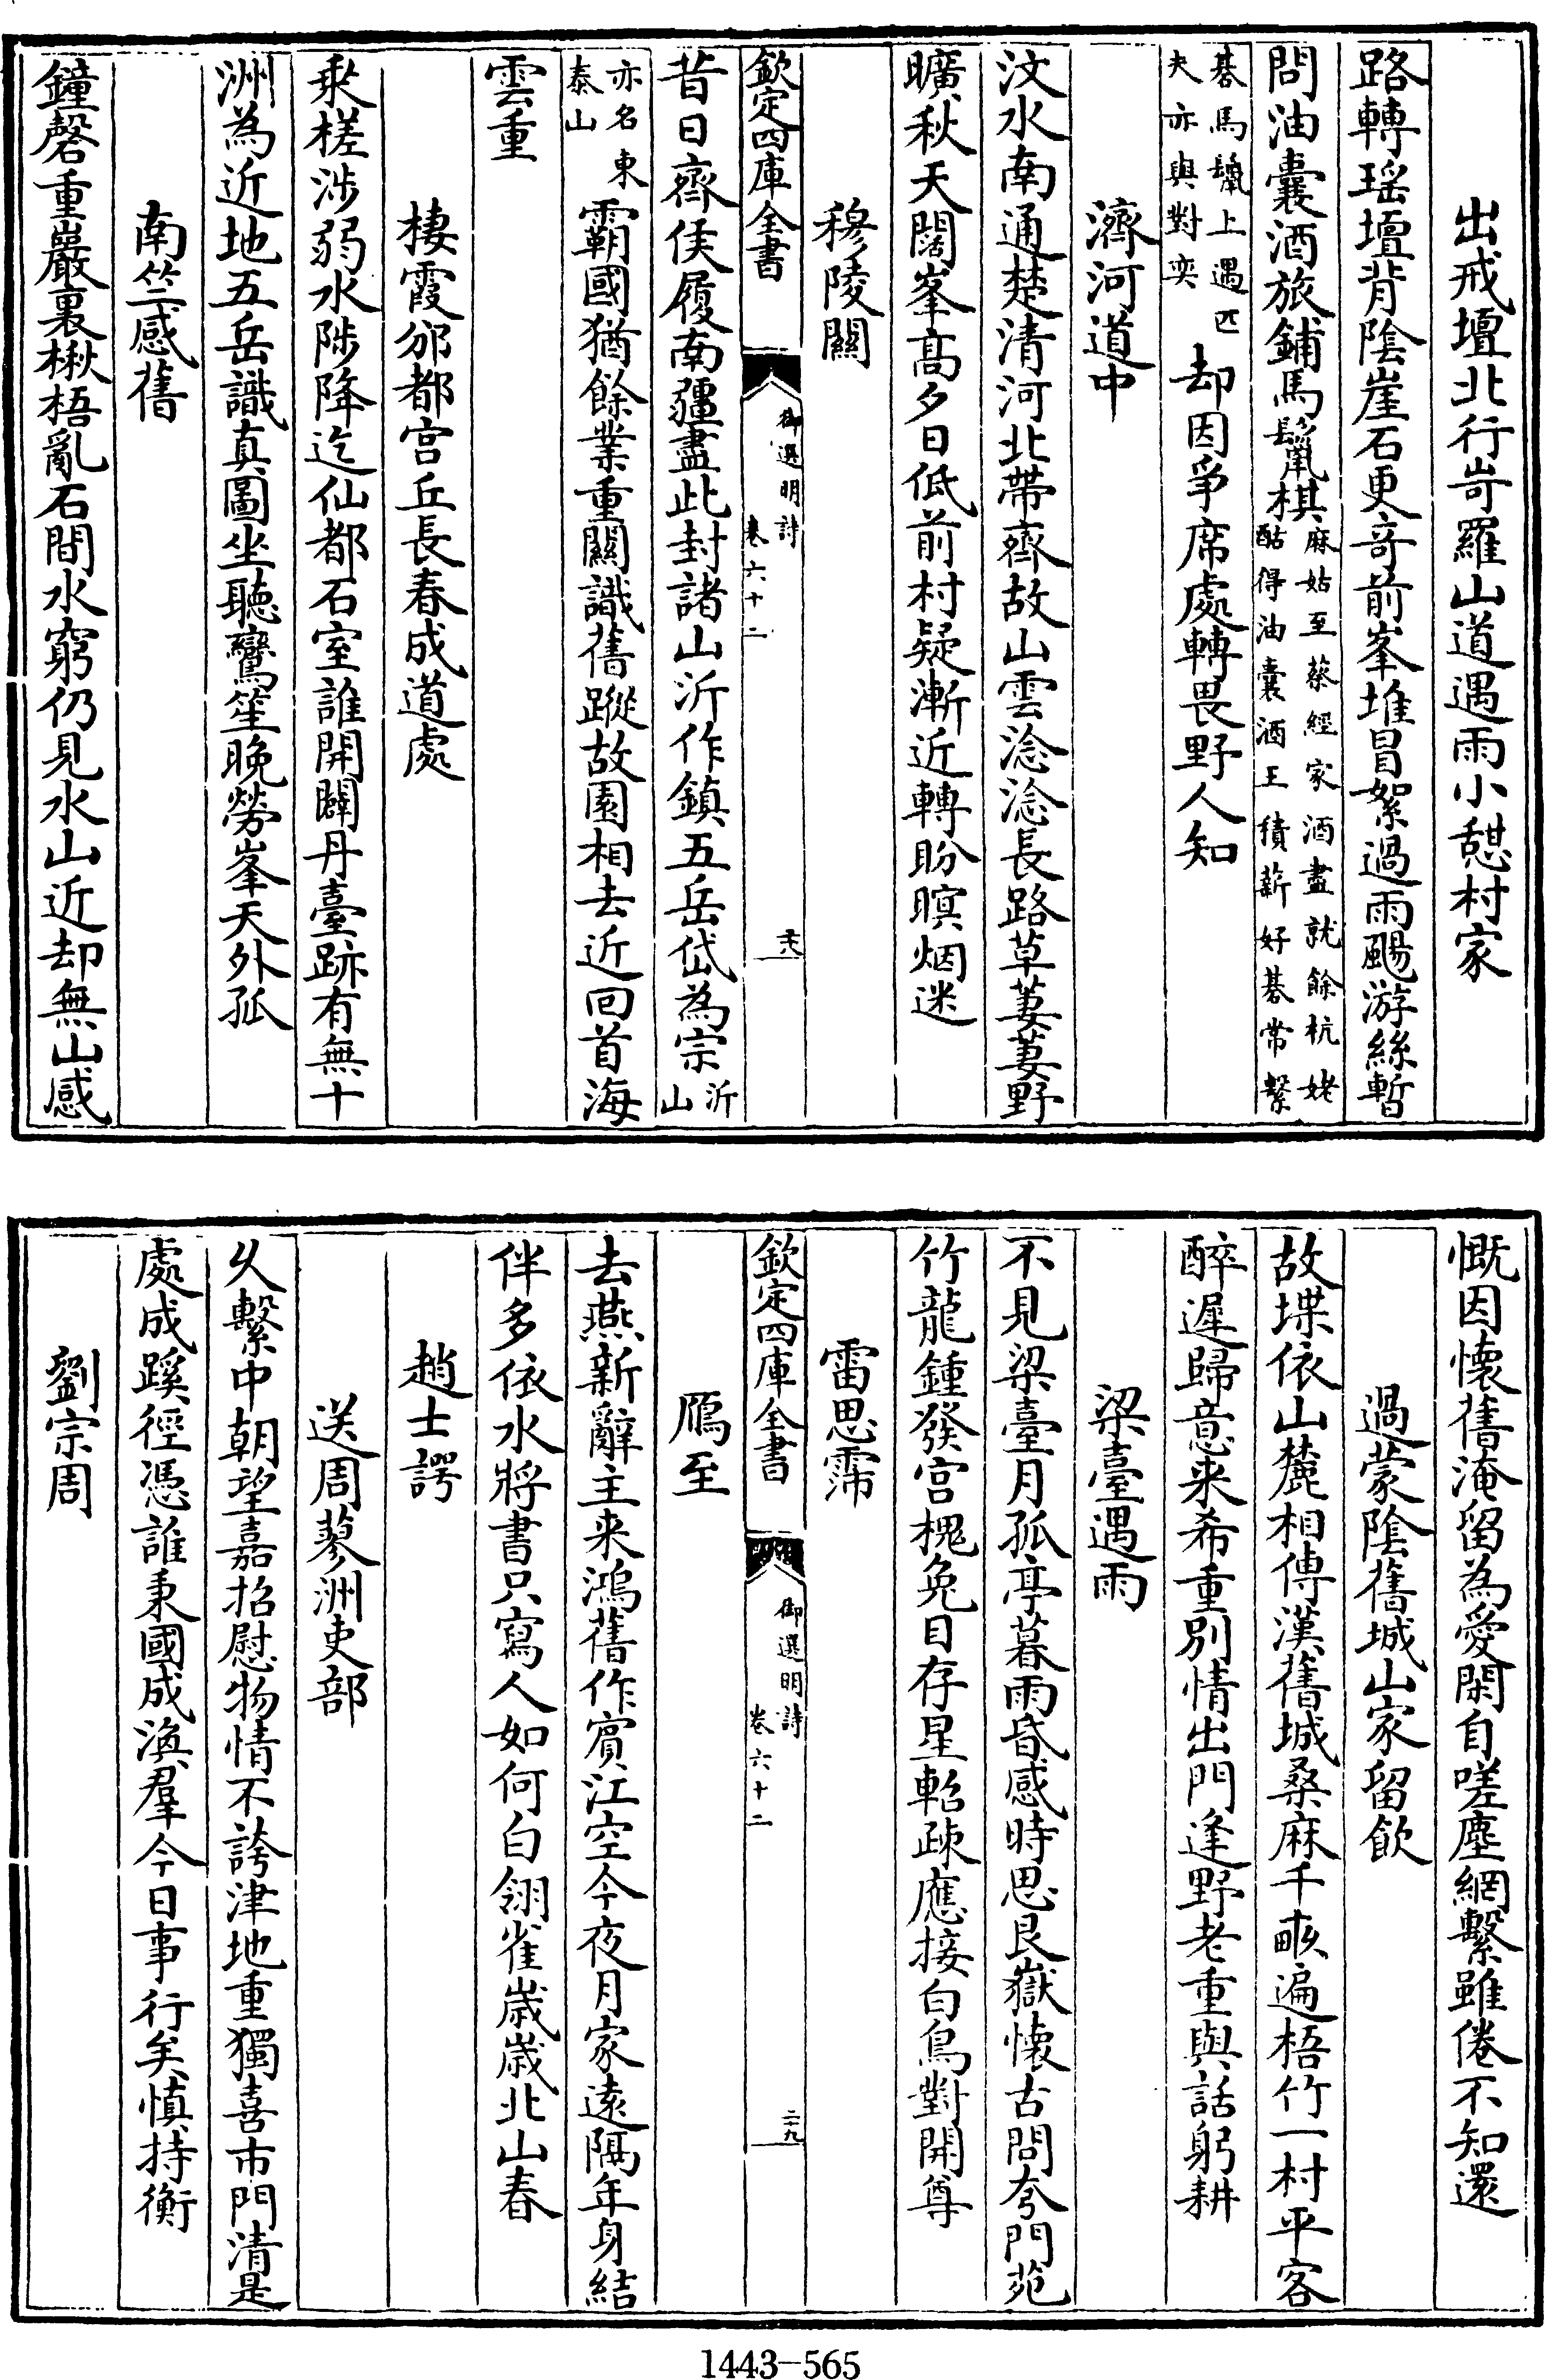 出戒壇北行岢羅山道遇雨小憩村家
路轉瑶壇背陰崖石更竒前峯堆冒絮過雨颺游絲暫
問油囊酒旅鋪馬鬛棋麻姑至蔡經家酒盡就餘杭姥
酤得油囊酒王積薪好碁常繫
碁馬鬛上遇匹
夫亦與對奕却因爭席處轉畏野人知
濟河道中
汶水南通楚清河北帶齊故山雲淰淰長路草萋萋野
曠秋天闊峯髙夕日低前村疑漸近轉盼暝烟迷
穆陵關
欽定四庫全書
御選明詩
卷六十二
二十八
昔日齊侯履南疆盡此封諸山沂作鎮五岳岱為宗沂
山
亦名東
泰山霸國猶餘業重關識舊蹤故園相去近回首海
雲重
棲霞邠都宫丘長春成道處
乗槎涉弱水陟降迄仙都石室誰開闢丹臺跡有無十
洲為近地五岳識真圖坐聽鸞笙晚勞峯天外孤
南竺感舊
鐘磬重巖裏楸梧亂石間水窮仍見水山近却無山感
慨因懷舊淹留為愛閑自嗟塵網繫雖倦不知還
過蒙陰舊城山家留飲
故堞依山麓相傳漢舊城桑麻千畝遍梧竹一村平客
醉遲歸意来希重别情出門逢野老重與話躬耕
梁臺遇雨
不見梁臺月孤亭暮雨昏感時思艮嶽懷古問夯門苑
竹龍鍾發宫槐兔目存星軺疎應接白鳥對開尊
雷思霈
欽定四庫全書
御選明詩
卷六十二
二十九
鴈至
去燕新辭主来鴻舊作賓江空今夜月家遠隔年身結
伴多依水將書只寫人如何白翎雀歳歳北山春
趙士諤
送周蓼洲吏部
久繫中朝望嘉招慰物情不誇津地重獨喜市門清是
處成蹊徑憑誰秉國成渙羣今日事行矣慎持衡
劉宗周
1443-565